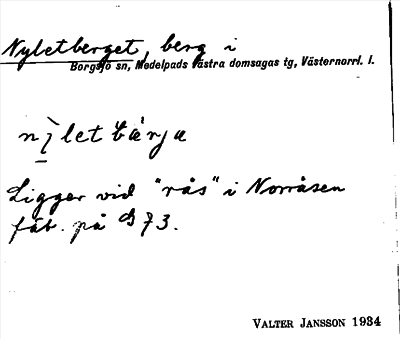 Nyletberget, berg i
Borgsjö sn, Medelpads västra domsagas tg, Västernorrl. l.
Ligger vid "rås" i Norråsen
fäb. på
VALTER JANSSON 1934